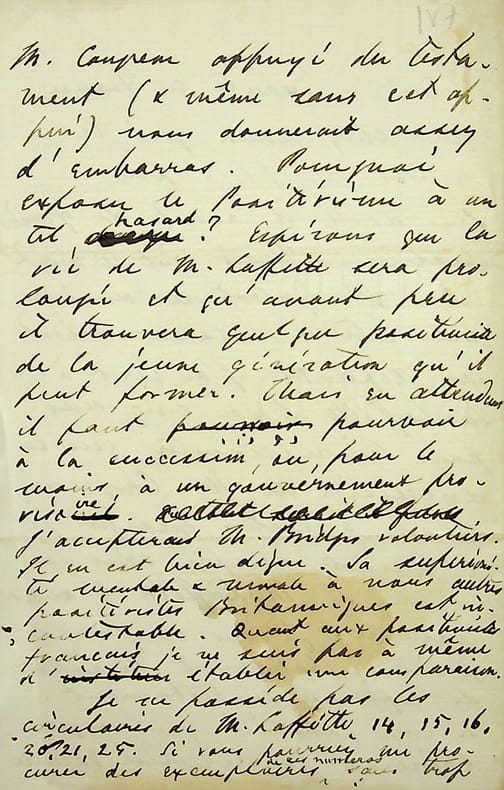 187
M. Congreve appuyé du testa-
ment (& même sans cet ap-
pui) nous donnerait assez
d'embarras. Pourquoi
exposer le Positivisme à un
tel hasard? Espérons que la
vie de M. Laffitte sera pro-
longée et qu'avant peu
il trouvera quelque positiviste
de la jeune génération qu'il
peut former. Mais en attendant
il faut pouvoir pourvoir
à la succession, ou, pour le
moins, à un gouvernement pro-
visoire.
J'accepterais M. Bridges volontiers.
Il en est bien digne. Sa supériori-
té mentale & morale à nous autres
positivistes Britanniques est in-
contestable. Quant aux positivistes
français je ne suis pas à même
d'établir une comparaison.
Je ne possède pas les
circulaires de M. Laffitte 14, 15, 16,
20, 21, 25. Si vous pourriez me pro-
curer des exemplaires de ces numéros sans trop